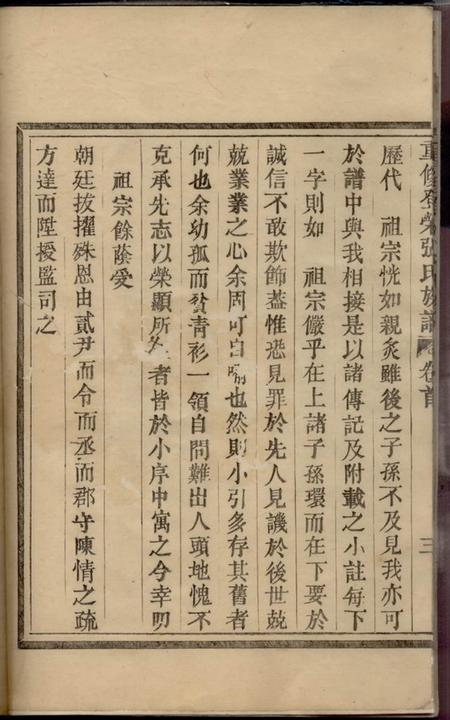 重修登榮張氏族譜 卷首 三
歷代　祖宗恍如親炙雖後之子孫不及見我亦可
於譜中與我相接是以諸傳記及附載之小註每下
一字則如　祖宗儼乎在上諸子孫環而在下要於
誠信不敢欺飾葢惟恐見罪於先人見譏於後世兢
兢業業之心余固可自喻也然則小引多存其舊者
何也余幼孤而貧青衫一領自問難出人頭地愧不
克承先志以榮顯所生者皆於小序中寓之今幸叨
祖宗餘蔭受
朝廷拔擢殊恩由貳尹而令而丞而郡守陳情之疏
方達而陞授監司之